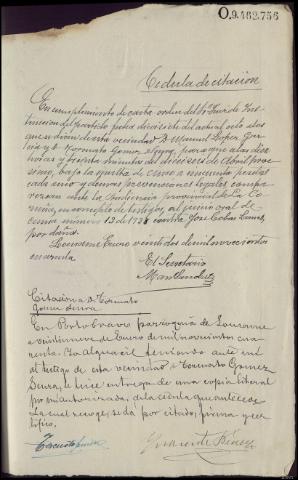 O,9.462.756
Cedula de citación
En cumplimiento de carta orden del Sr Juez de Ins-
trucion del partido fecha dieciseis del actual
vecindad D. Manuel Lopez Gar-
cia y D. Torcuato Gomez para que a las diez
y treinta minutos del dieciseis de Abril proc-
simo, bajo la multa de cinco a cincuenta pesetas
cada uno y demas prevenciones legales compa-
rezcan ante la Audiencia provincial de La Co-
ruña, en concepto de testigos, al juicio oral de
causa número 13 de 1938 contra José Cobas
por daños.
Enero veintidos de mil novecientos
cuarenta.
El Secretario
Citacion a D. Torcuato
Gomez
En Porto bravo parroquia de Lousame
a veintinueve de Enero de mil novecientos cua-
renta. Yo Alguacil teniendo ante mi
al testigo de esta vecindad D. Torcuato Gomez
le hice entrega de una copia literal
por mi autorizada, de la cédula que antecede
La cual recoge, se da por citado, firma y cer-
tifico.